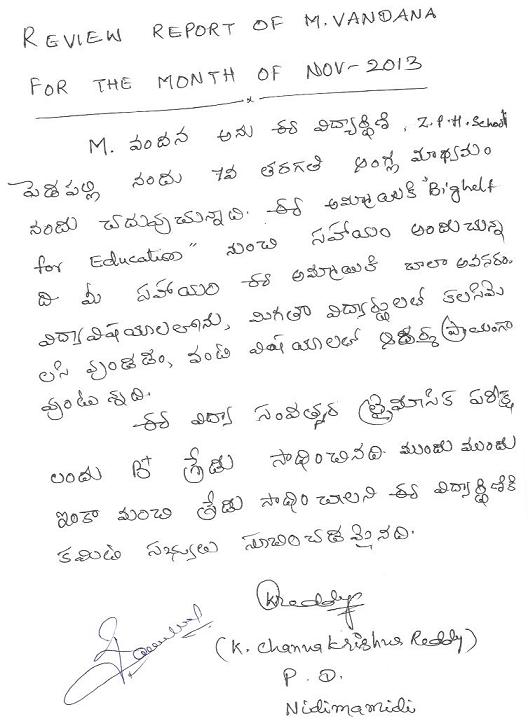 REVIEW REPORT OF M.VANDANA
FOR THE MONTH OF NOV-2013
M. వందన అను ఈ విద్యార్థిణి, Z.P.H. School
పెడపల్లి నందు 7వ తరగతి ఆంగ్ల మాధ్యమం
నందు చదువుచున్నాది. ఈ అమ్మాయికి "Bighelp
for Education" నుంచి సహాయం అందుచున్న
ది మీ సహాయం ఈ అమ్మాయికి చాలా అవసరం.
విద్యావిషయాలలోను, మిగతా విద్యార్థులతో కలసిమె
లసి వుండడం, వంటి విషయాలలో ఆదర్శ ప్రాయంగా
వుంటున్నది.
ఈ విద్యా సంవత్సర త్రైమాసిక పరీక్ష
లందు B+ గ్రేడు సాధించినది. ముందు ముందు
ఇంకా మంచి గ్రేడు సాధించాలని ఈ విద్యార్థిణికి
కమిటి సభ్యులు సూచించడమైనది.
KReddy
(K. Channakrishna Reddy)
P.D.
Nidimamidi